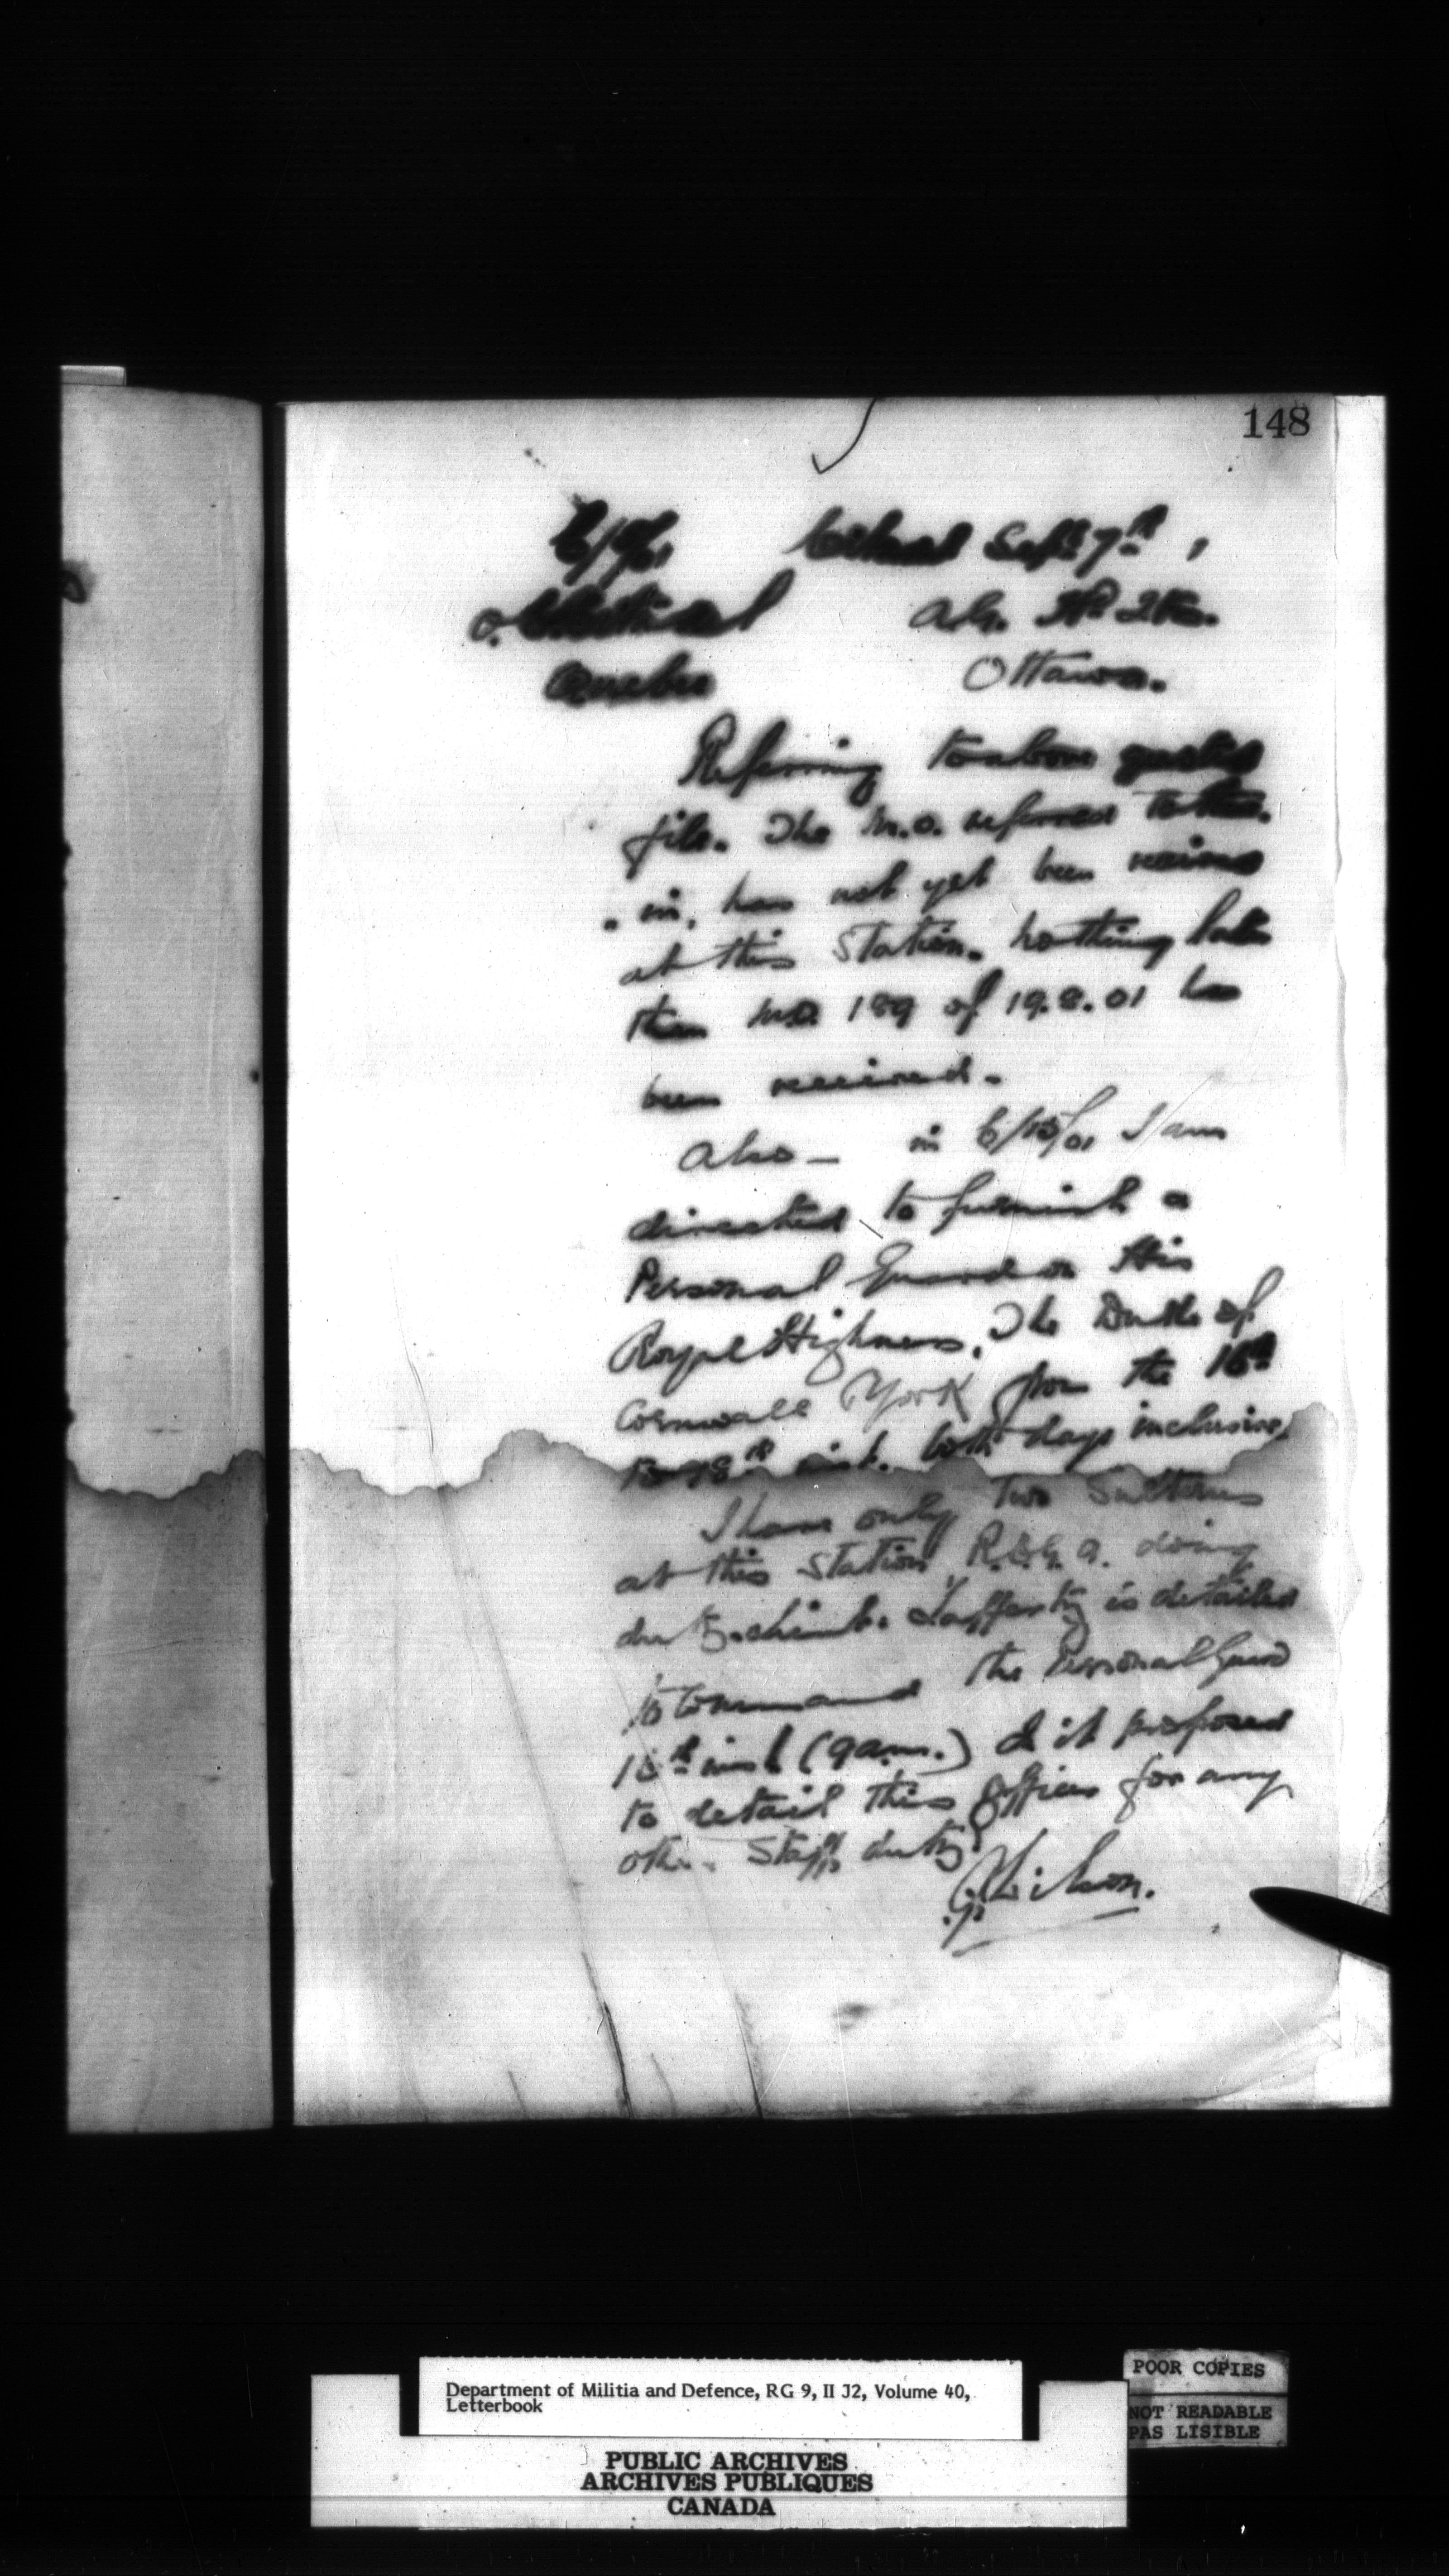 148
Citadel Sept 7th,
Quebec
Ottawa.
Referring to above quoted
file. The M.O. referred to there
in, has not yet been received
at this Station. Nothing later
than M.O. 189 of 19.8.01 has
been received.
Also — in I am
directed to furnish a
Personal Guard on His
Royal Highness, The Duke of
Cornwall York from the 16th
to 18th inst. both days inclusive.
I have only two Subalterns
at this Station R.C.G.A. doing
duty. Lieut. Lafferty is detailed
to command the Personal Guard
16th inst (9 a.m.) Is it proposed
to detail this Officer for any
other Staff duty?
Wilson.
Department of Militia and Defence, RG 9, II J2, Volume 40,
Letterbook
POOR COPIES
NOT READABLE
PAS LISIBLE
PUBLIC ARCHIVES
ARCHIVES PUBLIQUES
CANADA